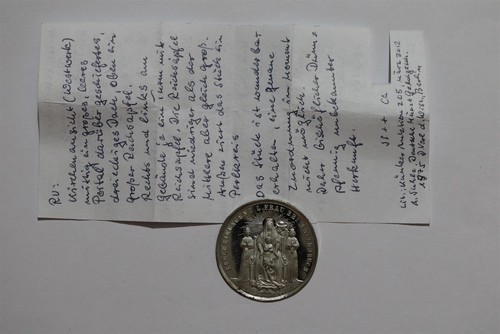 RU:
Kirchenansicht (Westwerk)
mittig ein großes, leeres
Portal darüber geschichtetes,
dreieckiges Dach, oben ein
großer Reichsapfel.
Rechts und links am
Gebäude je ein Turm mit
Reichsapfel. Die Reichsäpfel
sind niedriger als der
mittlere aber gleich groß.
Außen ziert das Stück ein
Perlkreis
Das Stück ist wunderbar
erhalten, eine genaue
Zuordnung im Moment
nicht möglich.
Daher Bischöflicher Dünn-
pfennig unbekannter
Herkunft.
ST ++
Lit.: Künker Auktion 205, März 2012
A. Suhle Deutsche
1975 Berlin
L. FRAU BEI